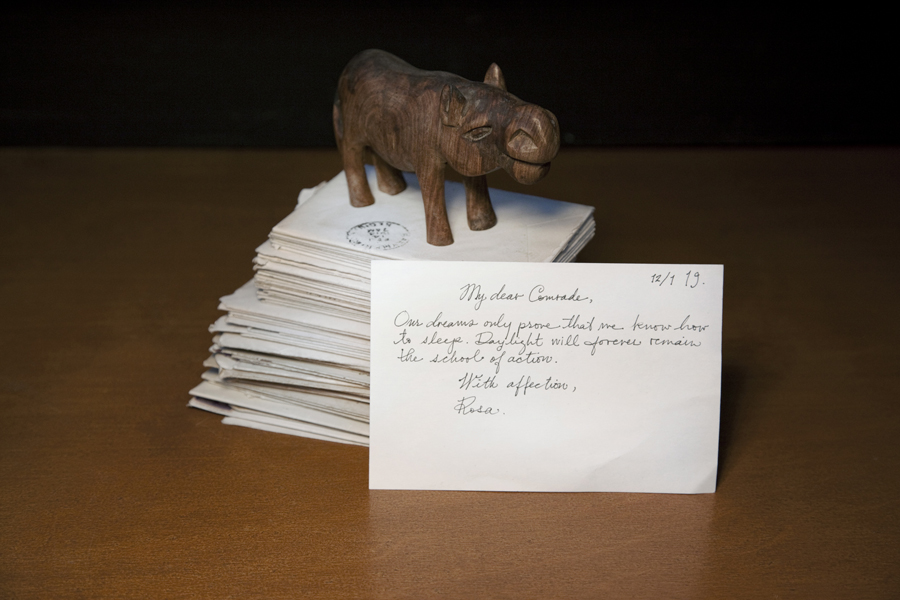 12/1 19.
My dear Comrade,
Our dreams only prove that we know how
to sleep. Daylight will forever remain
the school of action.
With affection,
Rosa.